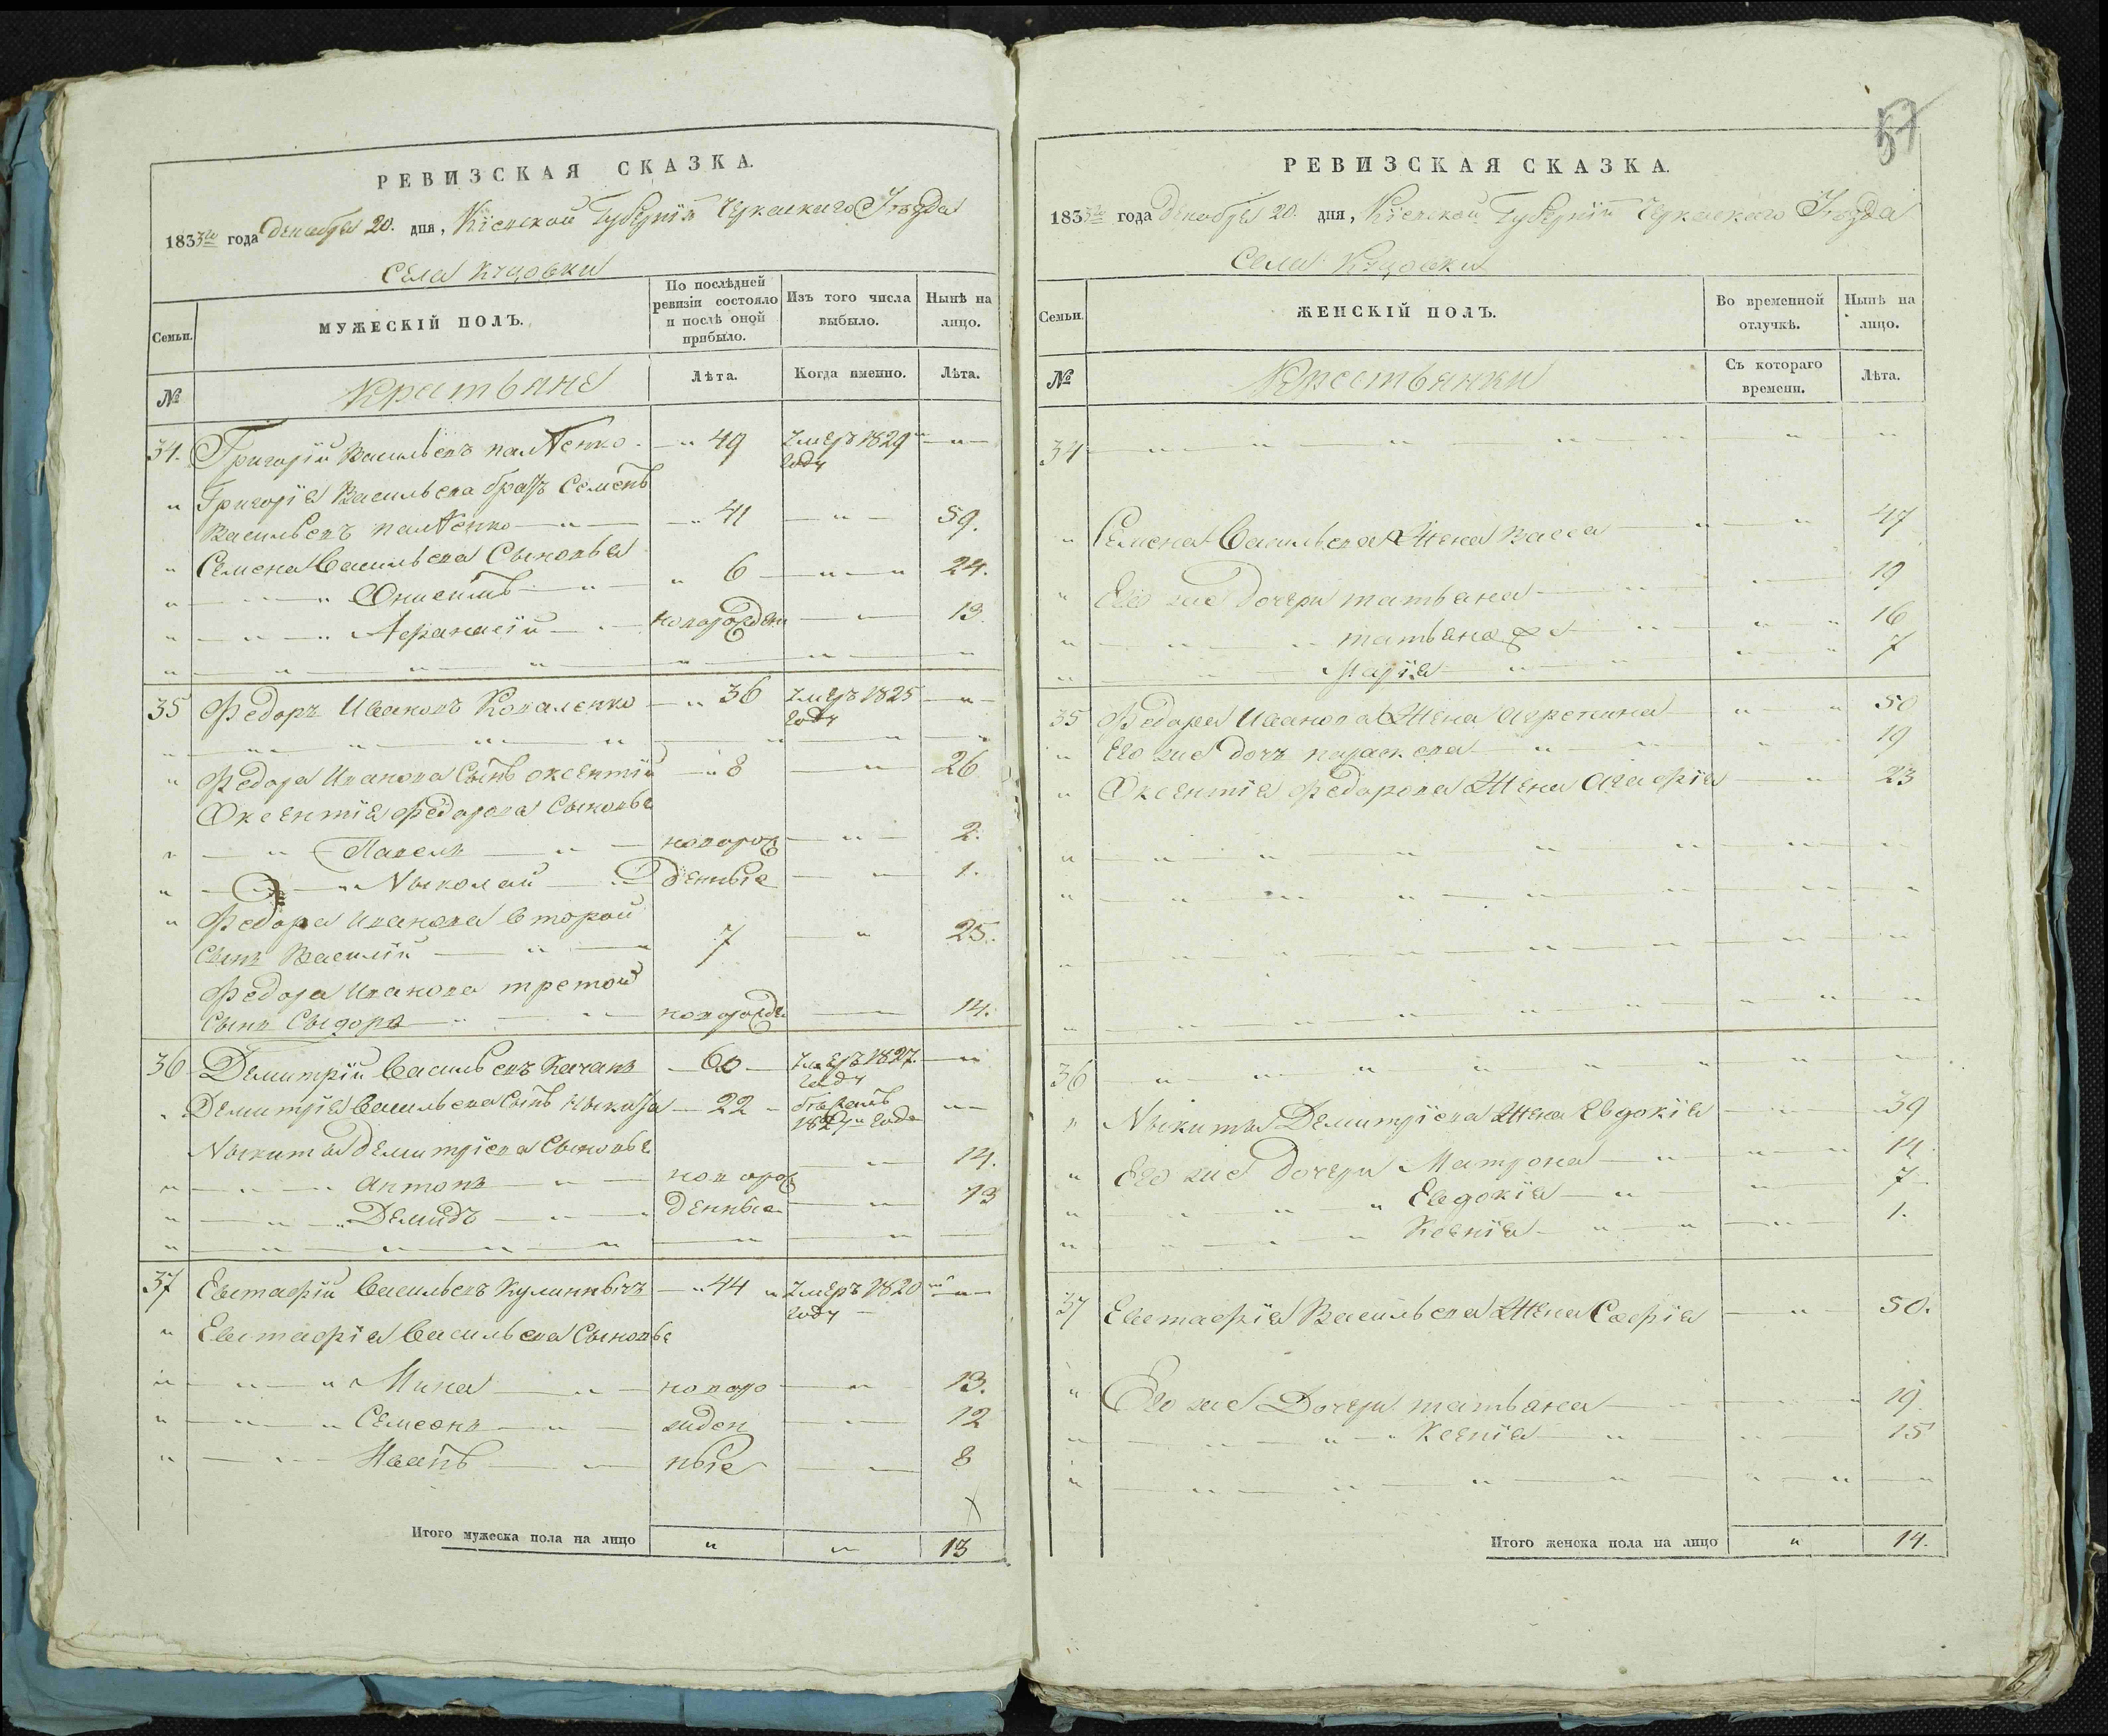 РЕВИЗСКАЯ СКАЗКА.
1833го года декабря 20. дня, Кіевской Губерніи Черкаскаго Уезда
Села Куцовки
Семьи.
МУЖЕСКІЙ ПОЛЪ.
По послѣдней ревизіи состояло и послѣ оной прибыло.
Изъ того числа выбыло.
Нынѣ на лицо.
№
Лѣта.
Когда именно.
Лѣта.
34. Григорій Васильевъ 49 Умеръ 1829 году
Григорія Васильева братъ Семенъ
Васильевъ 41 59.
Семена Васильева Сыновья
Онисимъ 6 24.
Афанасій новорожден 13.
35 Федоръ Ивановъ Коваленко 36 Умеръ 1825 году
Федора Иванова Сынъ оксентій 8 26
Оксентія Федорова Сыновье
Павелъ новорож 2.
Николай денные 1.
Федора Иванова второй
Сынъ Василій 7 25.
Федора Иванова третой
Сынъ Сыдоръ новорожде 14.
36 Демитрій Васильевъ Качанъ 60 Умеръ 1827. году
Демитрія Васильева Сынъ Ныкита 22 бежалъ 1827 года
Ныкиты Демитріева Сыновье
Антонъ новорож 14.
Демидъ денные 13
37 Евстафій Васильевъ Кулиннычъ 44 Умеръ 1820 году
Евстафія Васильева Сыновье
Мина новоро 13.
Семеонъ жден 12
Иванъ ные 8
Итого мужеска пола на лицо 13
57
РЕВИЗСКАЯ СКАЗКА.
1833го года декабря 20. дня, Кіевской Губерніи Черкаскаго Уезда
Села Куцовки
Семьи.
ЖЕНСКІЙ ПОЛЪ.
Во временной отлучкѣ.
Нынѣ на лицо.
№
Крестьянки
Съ котораго времени.
Лѣта.
34
Семена Васильева Жена Васса 47
Его же Дочери татьяна 19
татьяна 16
Марія 7
35 Федора Иванова Жена Агрепина 50
Его же дочъ параскева 19
Оксентія Федорова Жена Агафія 23
36
Ныкиты Демитріева Жена Евдокія 39
Его же дочери Матрона 14
Евдокія 7
Ксенія 1.
37 Евстафія Васильева Жена Софія 50.
Его же Дочери татьяна 19.
Ксенія 15
Итого женска пола на лицо 14.